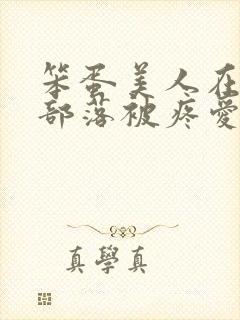 笨蛋美人在
部落被疼爱
真學真